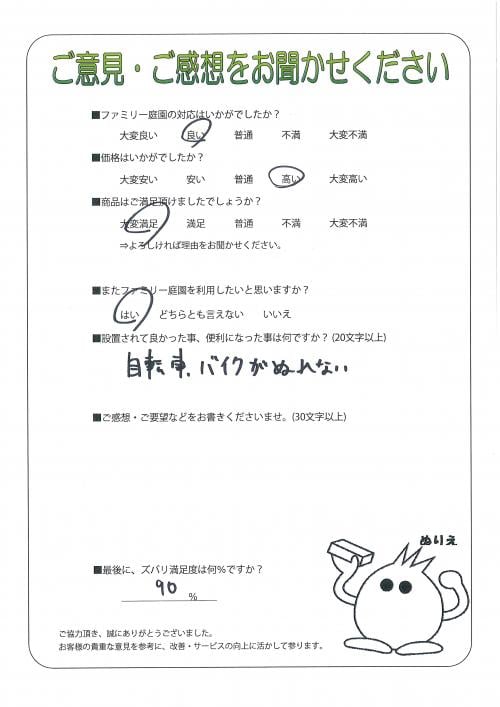 ご意見・ご感想をお聞かせください
■ファミリー庭園の対応はいかがでしたか？
大変良い 良い 普通 不満 大変不満
■価格はいかがでしたか？
大変安い 安い 普通 高い 大変高い
■商品はご満足頂けましたでしょうか？
大変満足 満足 普通 不満 大変不満
⇒よろしければ理由をお聞かせください。
■またファミリー庭園を利用したいと思いますか？
はい どちらとも言えない いいえ
■設置されて良かった事、便利になった事は何ですか？(20文字以上)
自転車、バイクがぬれない
■ご感想・ご要望などをお書きくださいませ。(30文字以上)
ぬりえ
■最後に、ズバリ満足度は何％ですか？
90 %
ご協力頂き、誠にありがとうございました。
お客様の貴重な意見を参考に、改善・サービスの向上に活かして参ります。